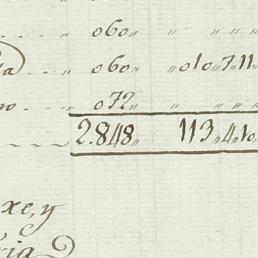 060,, ,, ,, ,, ,,
a . . . ,, 060,, ,, 010,,7,,11
o . . ,, 072,, ,, ,, ,, ,,
2.848,, 113,,4,,10
xe, y
ria